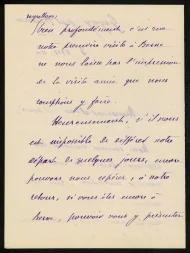 regrettons
très profondément, c'est que
notre première visite à Rome
ne nous laisse pas l'impression
de la visite amie que nous
comptions y faire.
Heureusement, s'il nous
est impossible de différer notre
départ de quelques jours, nous
pouvons nous espérer, à notre
retour, si vous êtes encore à
Rome, pouvoir vous y présenter